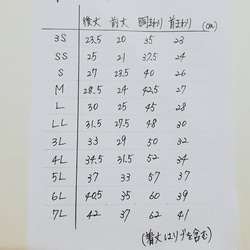 後丈 前丈 胴まわり 首まわり (cm)
3S 23.5 20 35 23
SS 25 21 37.5 24
S 27 23.5 40 26
M 28.5 24 42.5 27
L 30 25 45 28
LL 31.5 27.5 48 30
3L 33 29 50 32
4L 34.5 31.5 52 34
5L 37 33 57 37
6L 40.5 35 60 39
7L 42 37 62 41
(着丈はリブを含む)